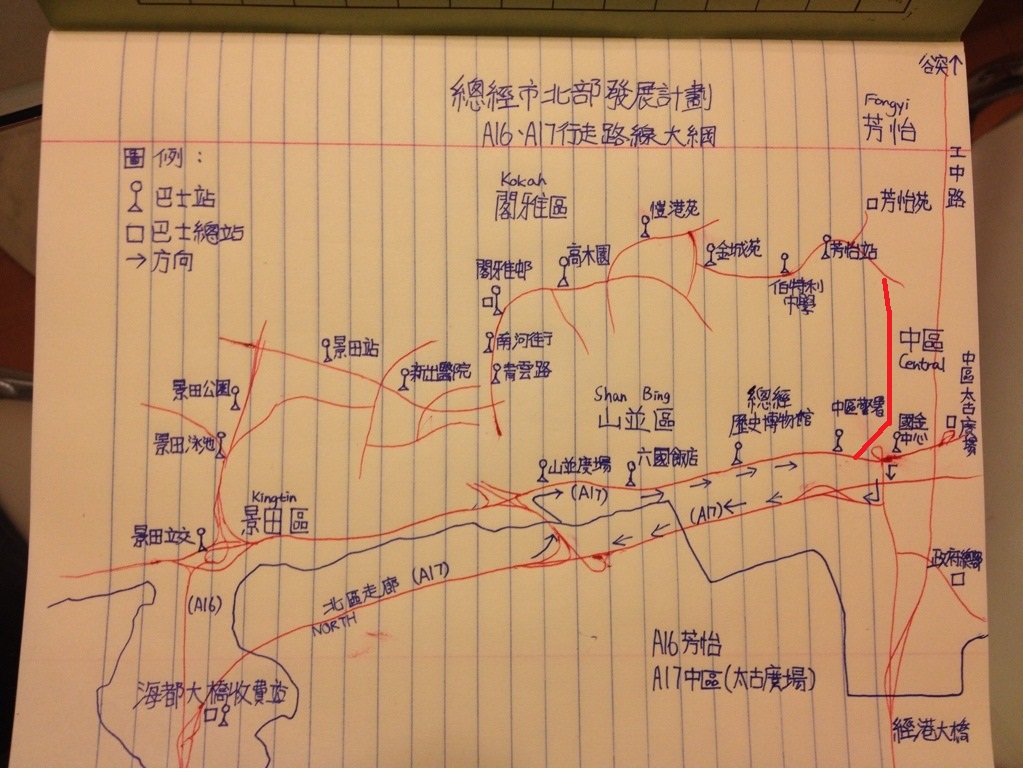 總經市北部發展計劃
A16、A17行走路線大綱
谷突↑
Fongyi
芳怡
工中路
圖例：
巴士站
巴士總站
→方向
Kokah
閣雅區
愷港苑
芳怡苑
高木園
金城苑
芳怡站
閣雅邨
伯特利
中學
南河街
青雲路
景田站
新出醫院
景田公園
景田泳池
中區
Central
中區太古廣場
Shan Bing
山並區
總經
歷史博物館
中區警署
國金
中心
山並廣場
六國飯店
(A17)
(A17)
Kingtin
景田區
景田立交
(A16)
北區走廊 (A17)
NORTH
政府總部
A16芳怡
A17中區(太古廣場)
海都大橋收費站
經港大橋